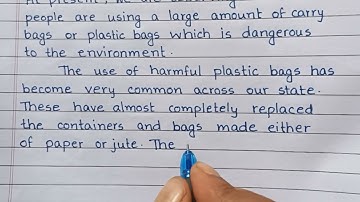 people are using a large amount of carry
bags or plastic bags which is dangerous
to the environment.
The use of harmful plastic bags has
become very common across our state.
These have almost completely replaced
the containers and bags made either
of paper or jute. The